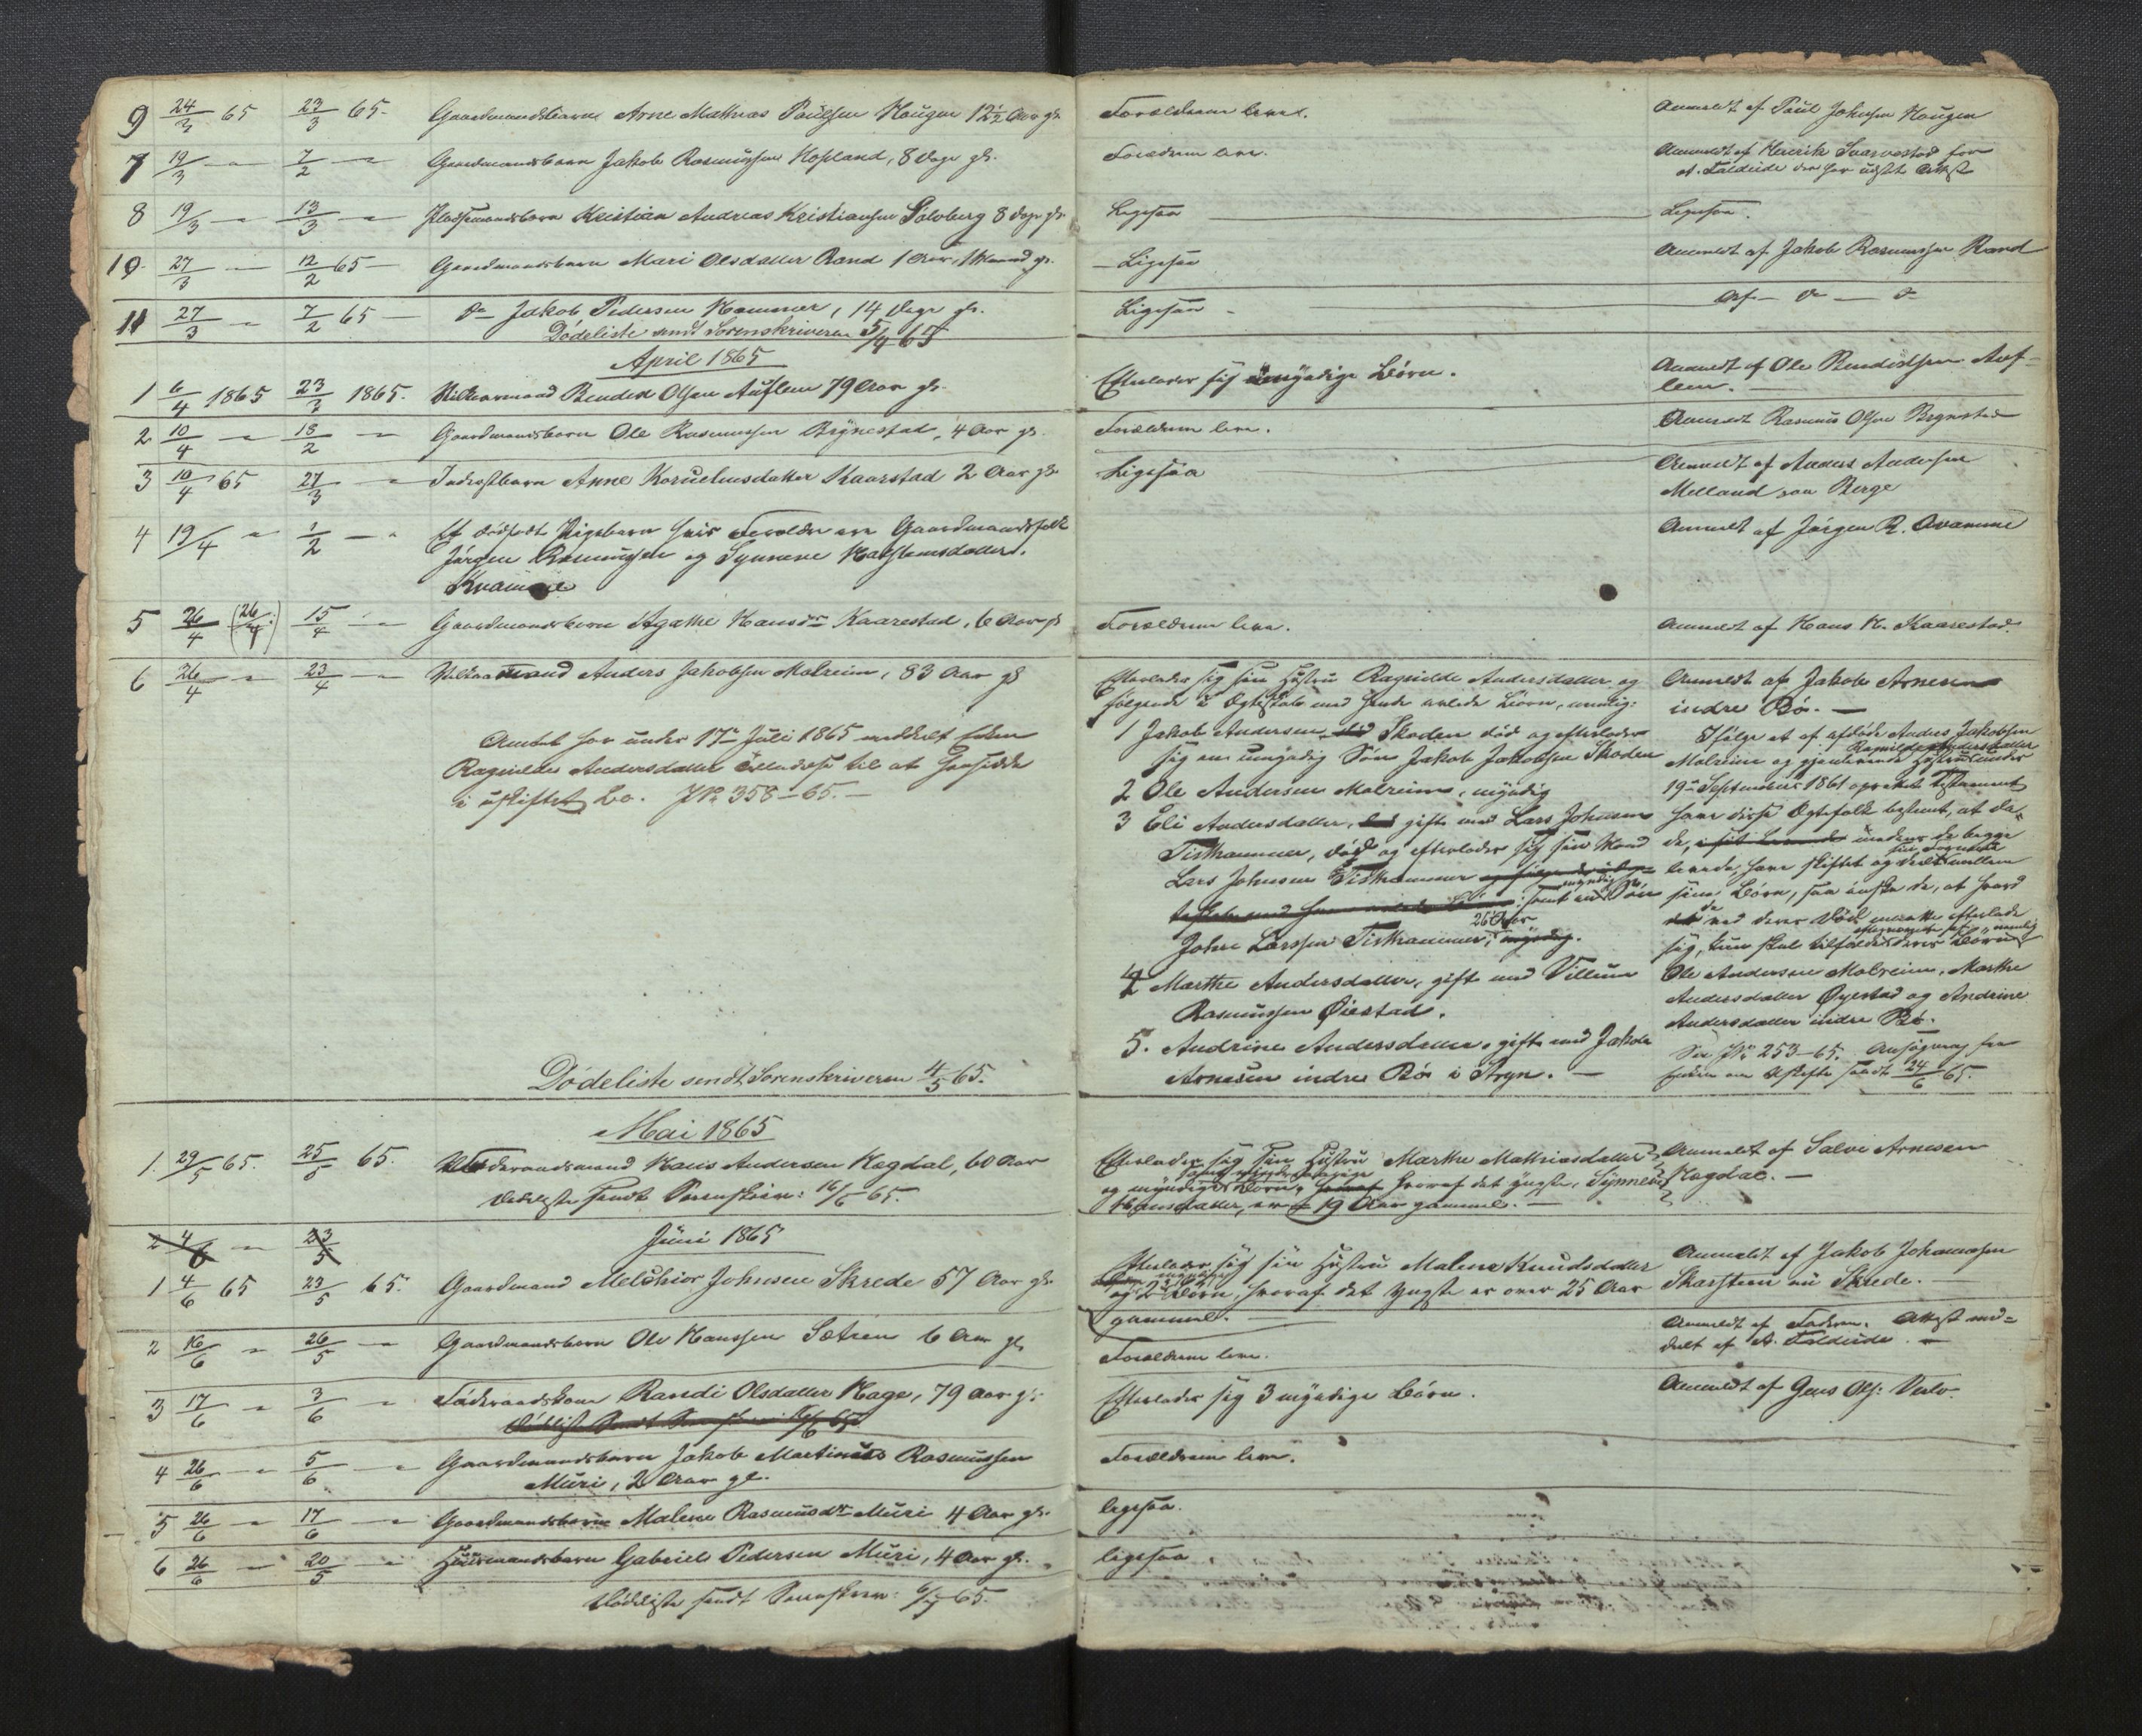 9 24/3 65 23/3 65 - Gaardmandsbarn Arne Mathias Paulsen Haugen 12½ Aar gl. Forældrene lever. Anmeldt af Paul Johnsen Haugen
7 19/3 - " 7/2 - " Gaardmandsbarn Jakob Rasmussen Hopland, 8 Dage gl. Forældrene lever. Anmeldt af Henrik Svarvestad for
A. Faldeide der har udstedt Attest
8 19/3 - " 13/3 - " Pladsemandsbarn Kristian Andreas Kristiansen Solvberg 8 Dage gl. Ligesaa Ligesaa.
10 27/3 - " 12/2 65 - Gaardmandsbarn Mari Olsdatter Rand 1 Aar, 1 Maaned gl. Ligesaa Anmeldt af Jakob Rasmussen Rand
11 27/3 - " 7/2 65 - do Jakob Pedersen Hammer, 14 Dage gl. Ligesaa - af - do - do
Dödeliste sendt Sorenskriveren 5/4 65
April 1865
1 6/4 1865 23/3 1865. Vilkaarmand Bendix Olsen Auflem 79 Aar gl. Efterlader sig myndige Börn. Anmeldt af Ole Bendixsen Auf-
lem. -
2 10/4 - " 13/2 - " Gaardmandsbarn Ole Rasmussen Brynestad, 4 Aar gl. Forældrene lever. Anmeldt Rasmus Olsen Brynestad
3 10/4 65 27/3 - " Inderstbarn Anne Korneliusdatter Kaarstad 2 Aar gl. Ligesaa Anmeldt af Anders Andersen
Melland paa Berge
4 19/4 - " 1/2 - " Et dödfødt Pigebarn hvis Forældre ere Gaardmandsfolk Anmeldt af Jörgen R. Qvamme
Jörgen Rasmussen og Synneve Karstensdatter
Kvamme
5 26/4 (26/4) 15/4 - " Gaardmandsbarn Agathe Hansdr Kaarestad, 6 Aar gl. Forældrene lever. Anmeldt af Hans H. Kaarestad.
6 26/4 - " 23/4 - " Vilkaarmand Anders Jakobsen Molreim, 83 Aar gl.
Amtet har under 17de Juli 1865 meddelt Enken
Ragnilde Andersdatter Tilladelse til at hensidde
i uskiftet Bo. J No 358 - 65. -
Dödeliste sendt Sorenskriveren 4/5 65.
Efterlader sig sin Hustru Ragnilde Andersdatter og
følgende i Ægteskab med hende avlede Börn, nemlig:
1 Jakob Andersen Skaden död og efterlader
sig en umyndig Sön Jakob Jakobsen Skaden
2 Ole Andersen Molreim, myndig
3 Eli Andersdatter, gift med Lars Johnsen
Tishammer, död og efterlader sig sin Mand
Lars Johnsen Tishammer
samt en myndig Sön
26 Aar
John Larssen Tishammer, myndig.
4 Marthe Andersdatter, gift med Villum
Rasmussen Øiestad.
5. Andrine Andersdatter, gift med Jakob
Arnesen indre Bø i Stryn. -
Anmeldt af Jakob Arnesen
indre Bø. -
Ifølge et af afdøde Anders Jakobsen
Molreim og gjenlevende Hustru Ragnilde Andersdatter under
19de September 1861 oprettet Testament
have disse Ægtefolk bestemt, at da
de, medens de begge
levede, have skiftet og deelt sin Formue mellem
sine Börn, saa önske de, at hvad
de ved deres Död maatte efterlade
sig, kun skal tilfalde deres Börn nemlig
Ole Andersen Molreim, Marthe
Andersdatter Øyestad og Andrine
Andersdatter indre Bø.
Se J No 253 - 65. Ansögning fra
Enken om Uskifte sendt 24/6 65.
Mai 1865
1. 29/5 65. 25/5 65. Føderaadsmand Hans Andersen Hegdal, 60 Aar
Dødeliste sendt Sorenskriv: 16/6 65.
Efterlader sig sin Hustru Marthe Mathiasdatter
og myndige Börn, hvoraf det yngste, Synneve
Hansdatter, er 19 Aar gammel. -
Anmeldt af Salve Arnesen
Hegdal. -
2 4/6 - " 23/5
Juni 1865
1 4/6 65 23/5 65. Gaardmand Melchior Johnsen Skrede 57 Aar gl.
Efterlader sig sin Hustru Malene Knudsdatter
og Börn, hvoraf det yngste er over 25 Aar
gammel. -
Anmeldt af Jakob Johannesen
Skarsteen nu Skrede. -
2 16/6 - " 26/5 - " Gaardmandsbarn Ole Hanssen Sætren 6 Aar gl. Forældrene lever. Anmeldt af Faderen. Attest med-
delt af A. Faldeide. -
3 17/6 - " 3/6 - " Föderaadskone Randi Olsdatter Hage, 79 Aar gl. Efterlader sig 3 myndige Börn. Anmeldt af Jens Ols:
Dödeliste sendt 16/6 65
4 26/6 - " 5/6 - " Gaardmandsbarn Jakob Martinus Rasmussen Forældrene lever.
Muri, 2 Aar gl.
5 26/6 - " 17/6 - " Gaardmandsbarn Malene Rasmusdtr Muri 4 Aar gl. ligesaa.
6 26/6 - " 20/5 - " Huusmandsbarn Gabriel Pedersen Muri, 4 Aar gl. ligesaa
Dödeliste sendt Sorenskriv: 6/7 65.